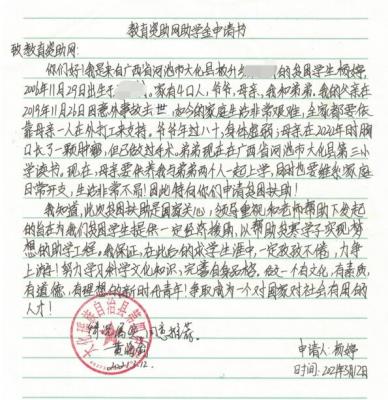 教育资助网助学金申请书
致教育资助网:
你们好!我是来自广西省河池市大化县板升 的贫困学生杨婷,
2006年11月29日出生于 。家有4口人,爷爷,母亲,我和弟弟。我的父亲在
2019年11月26日因意外事故去世,如今的家庭生活非常艰难,全家都要依
靠母亲一人在外打工来支持。爷爷年过八十,身体 ,母亲在2020年时胸
口长了一颗肿瘤,但已做过手术。弟弟现在在广西省河池市大化县第三小
学读书。现在,母亲要供养我弟弟两个人一起上学,同时也要维系家庭
日常开支,生活非常不易!因此特向你们申请贫困扶助!
我知道,此次贫困扶助是国家关心,领导重视和老师帮助下发起
的旨在为我们贫困学生提供一定经济援助,以帮助贫寒学子实现梦
想的助学工程。我保证,在此后的求学生涯中,一定孜孜不倦,力争
上游!努力学习科学文化知识,完善自身品格。做一个有文化,有素质,
有道德,有理想的新时代青年!争取成为一个对国家对社会有用的
人才!
情况属实,同意推荐。
2021.3.12.
申请人:杨婷
时间:2021年3月12日